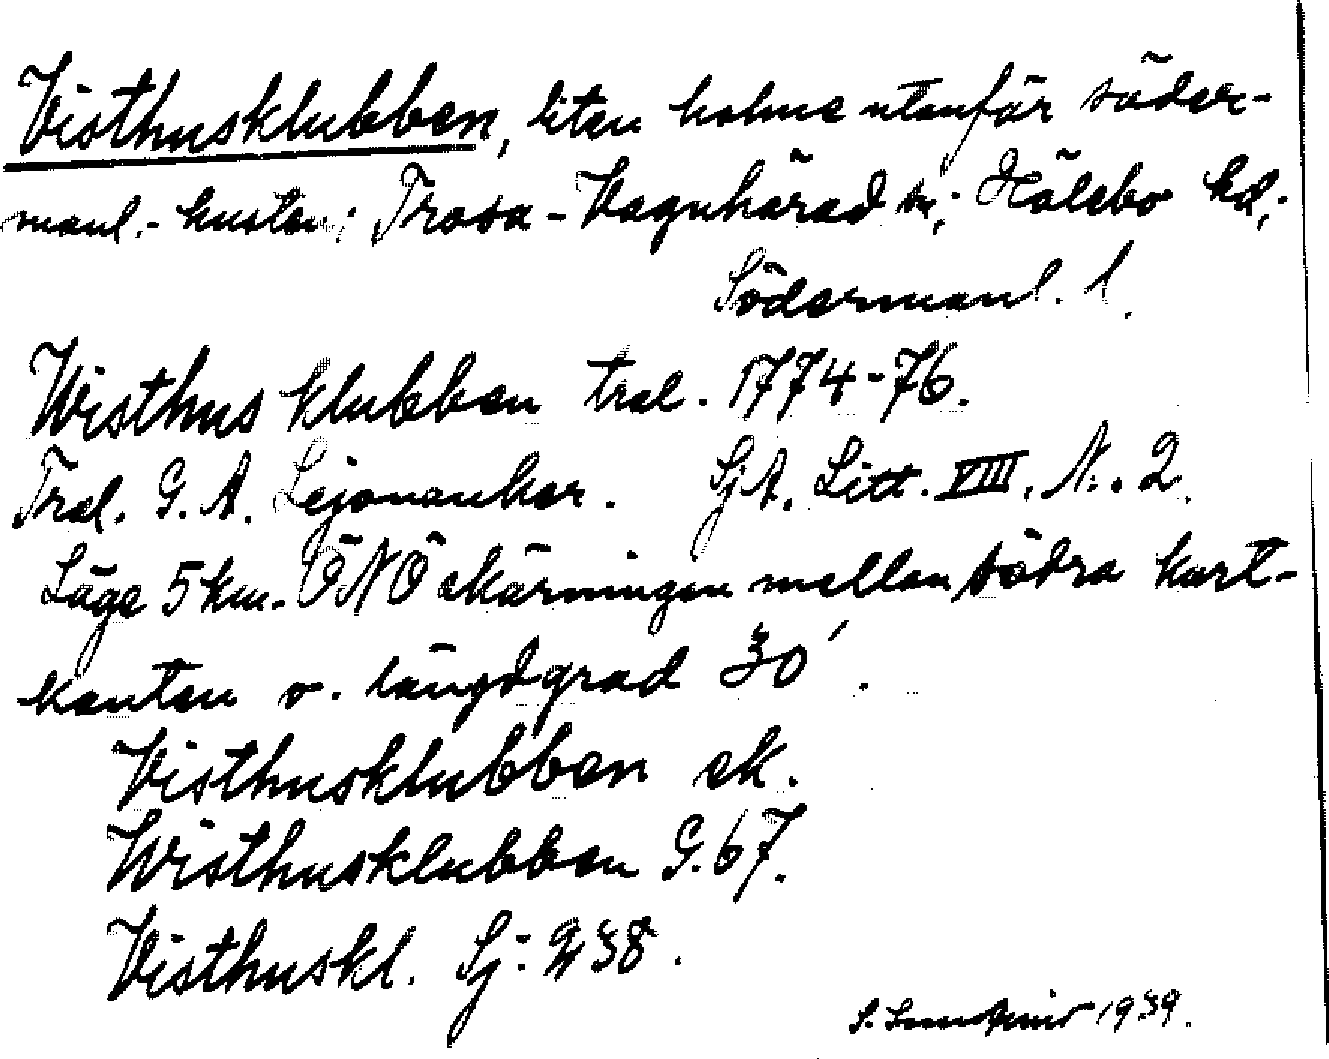 Visthusklubben, liten holme utanför söder-
manl.- kusten; Trosa-Vagnhärad sn; Hölebo hd;
Södermanl. l.
Wisthus klubben tral. 1774-76.
Tral. G. A. Lejonanker. SjA. Litt. VIII. N:. 2.
Läge 5 km. ÖNÖ skärningen mellan södra kart-
kanten o. längdgrad 30'.
Visthusklubben ek.
Wisthusklubben G. 67.
Visthuskl. Sj: 238.
S. 1939.